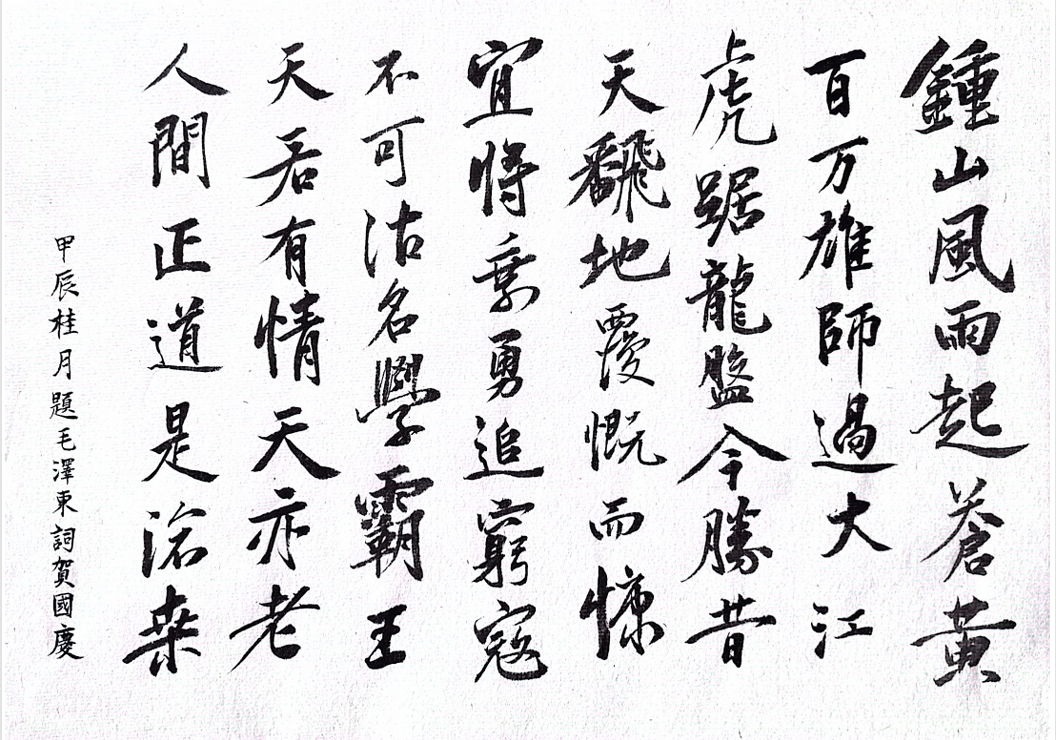 鍾山風雨起蒼黃
百万雄師過大江
上虎踞龍盤今勝昔
天翻地覆慨而慷
宜將乘勇追窮寇
不可沽名學霸王
天若有情天亦老
人間正道是滄桑
甲辰桂月題毛澤東詞賀國慶